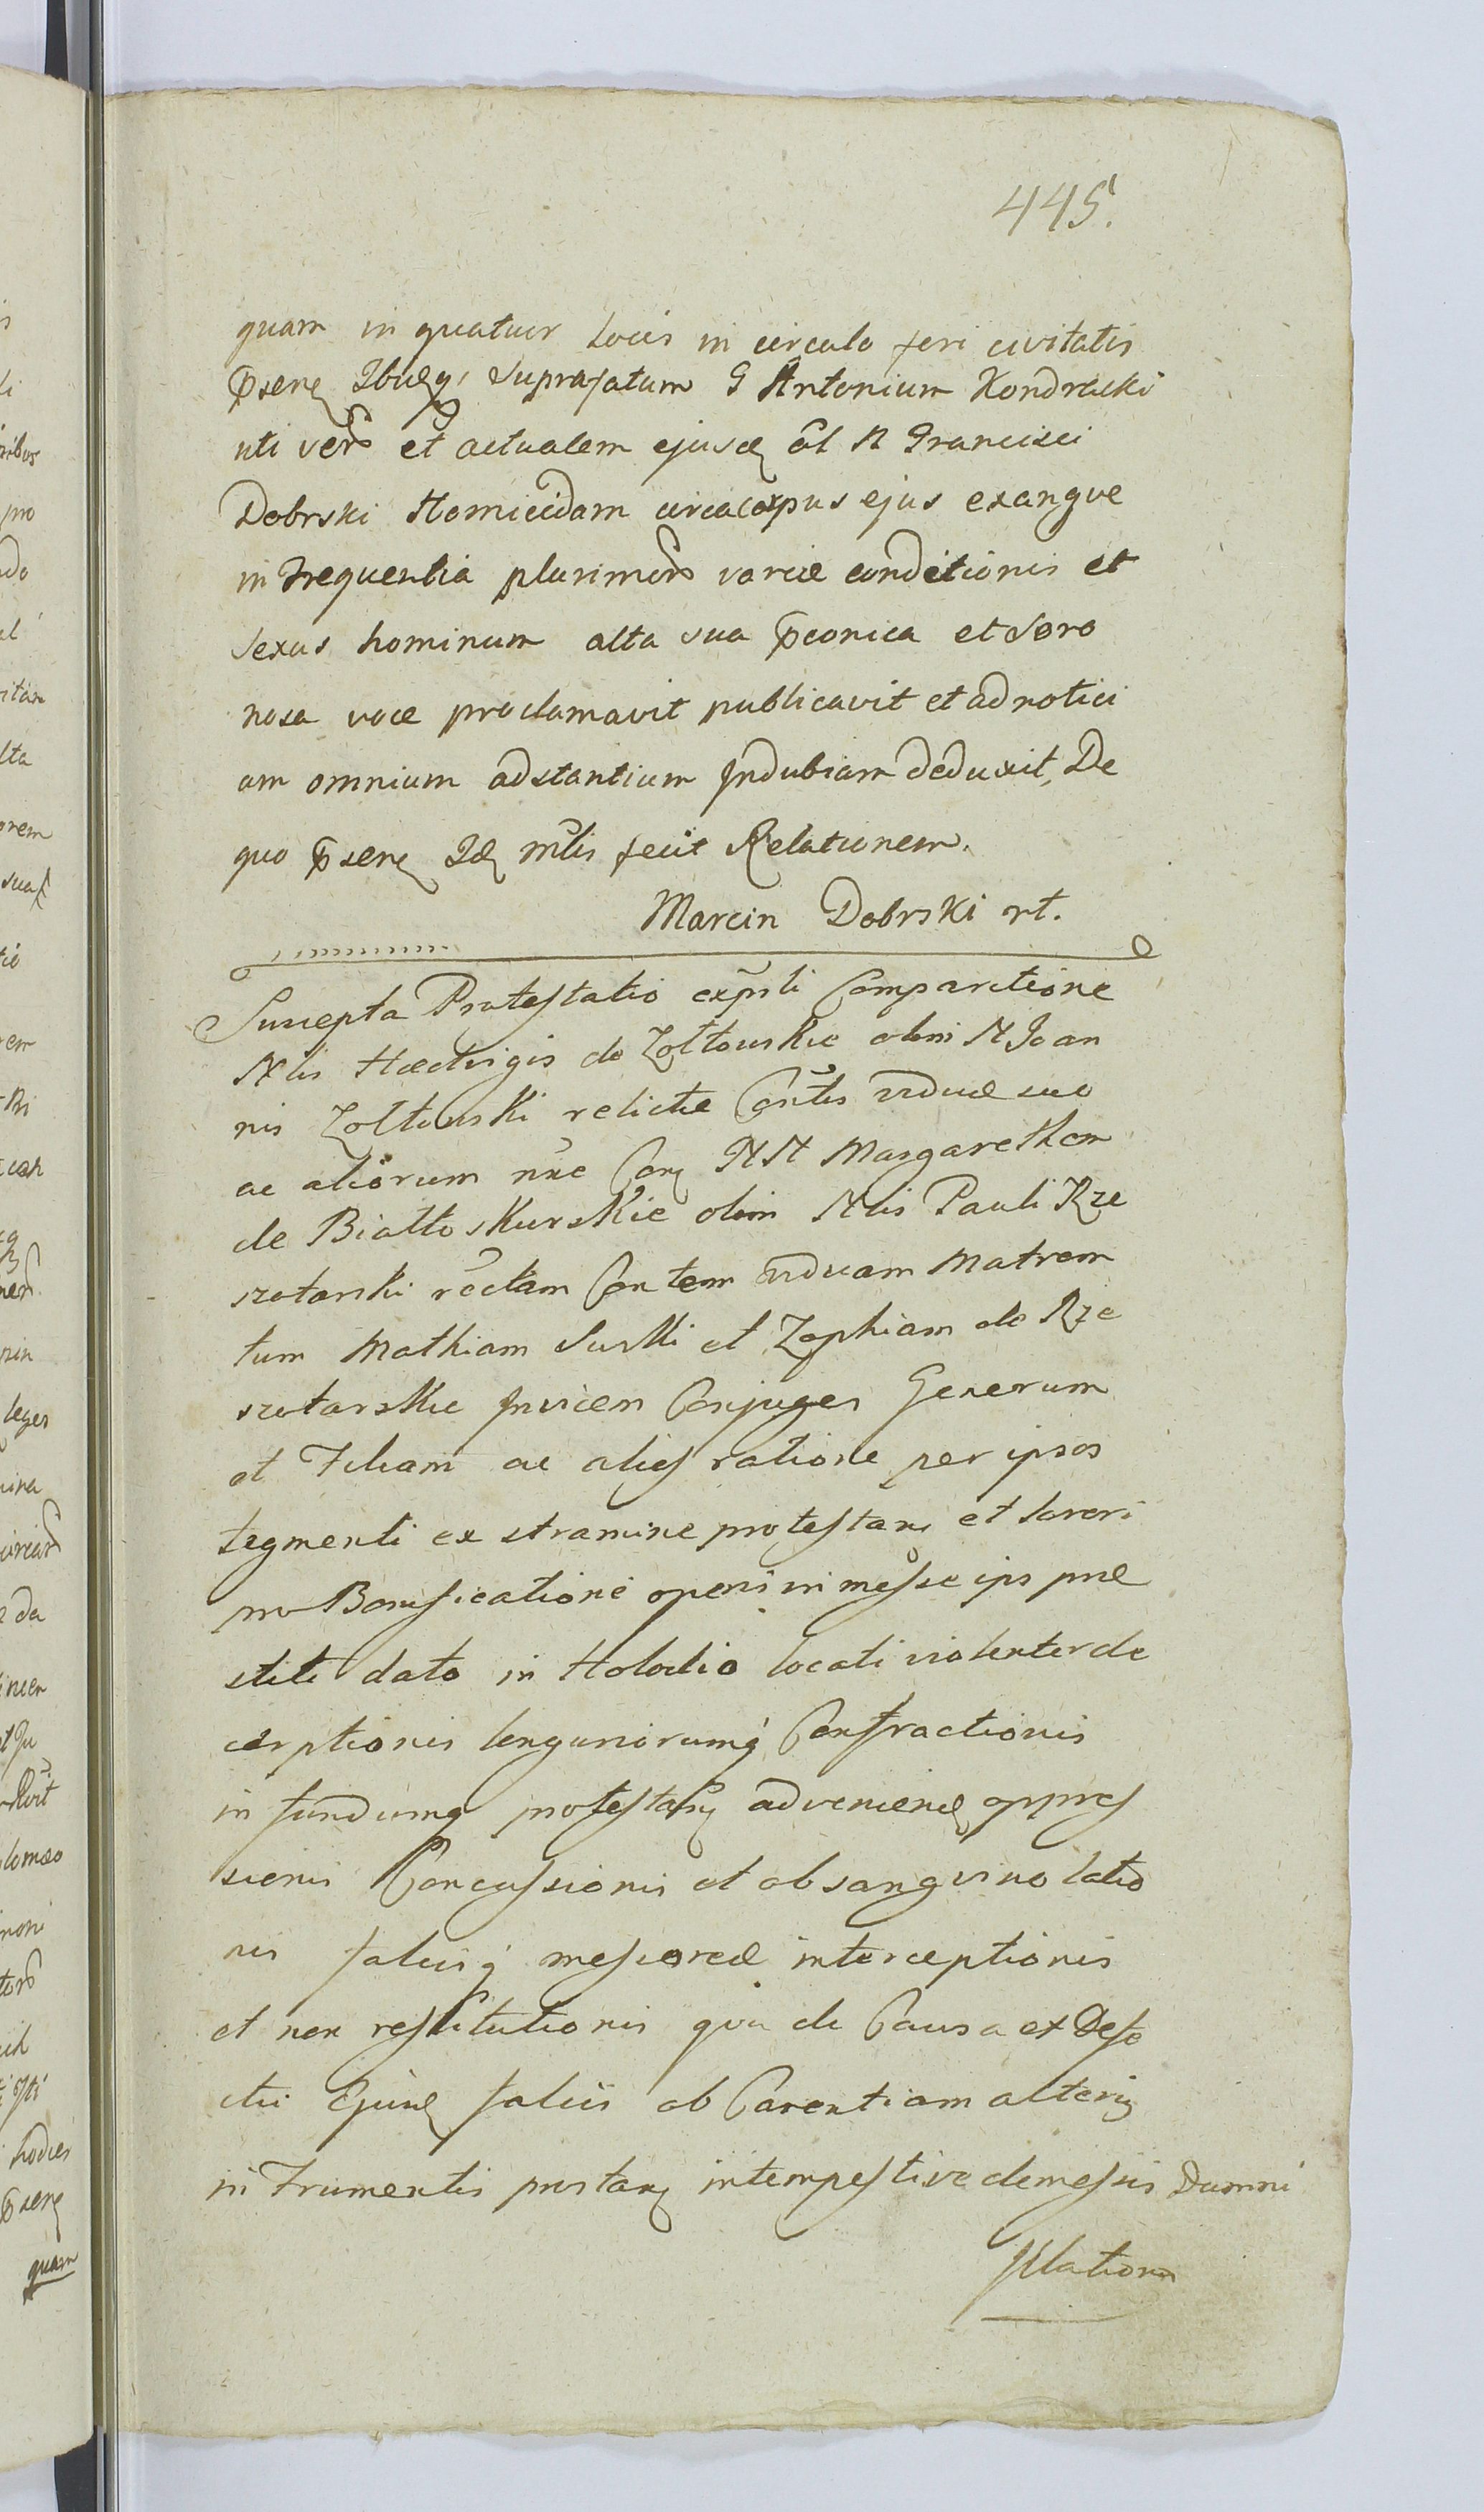 445.
quam in quatuor Locis in circulo fori civitatis
p̄seng Ibidēq, Suprafatum G Antonium Kondracki
uti verū et actualem ejusdē ōl N Francisci
Dobrski Homicidam circa corpus ejus exangue
in Frequentia plurimorū variæ conditionis et
Sexus hominum alta sua p̄conica et Sono
rosa voce proclamavit publicavit et ad notici
am omnium adstantium Indubiam deduxit, De
quo p̄seng Idē mlis fecit Relationem.
Marcin Dobrski rt.
Suscepta Protestatio expsti Comparitione
Nlis Hedvigis de Zołtowskie olim N Joan
nis Zołtowski relictæ Cōntis viduæ suo
ac aliorum nne Cong NN Margaretham
de Białłoskurskie olim Nlis Pauli Rze
szotarski rectam Contem viduam Matrem
tum Mathiam Suski et Zophiam de Rze
szotarskie Invicem Conjuges Generum
et Filiam ac alies ratione per ipsos
tegmenti ex stramine protestang et Sorori
pro Bonificatione operis in messe ips præ
stiti dato in Holodio locati violenter de
cerptionis longuriorumq Confractionis
in fundumq protestang advenienđ oppres
sionis Concussionis et obsanguinolatio
nis falcisq messoreæ interceptionis
et non restitutionis qua de Causa ex Defe
ctu Ejusdē falcis ob Carentiam alterig
in Frumentis prostang intempestive demessis Damni
Illationem
quam